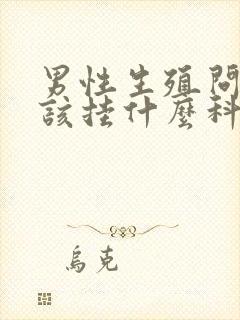 男性生殖問
該挂什麼科
烏克